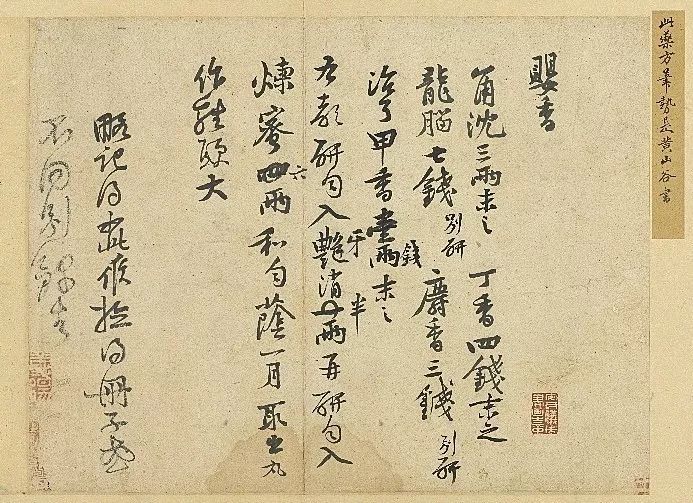 此藥方筆勢是黃山谷書
嬰香
角沈三兩末之 丁香四錢末之
龍腦七錢別研 麝香三錢別研
治了甲香壹錢末之
右都研勻入牙消半兩再研勻入
煉蜜六兩和勻蔭一月取出丸
作雞頭大
略記得如此候檢得冊子或
不同別錄去